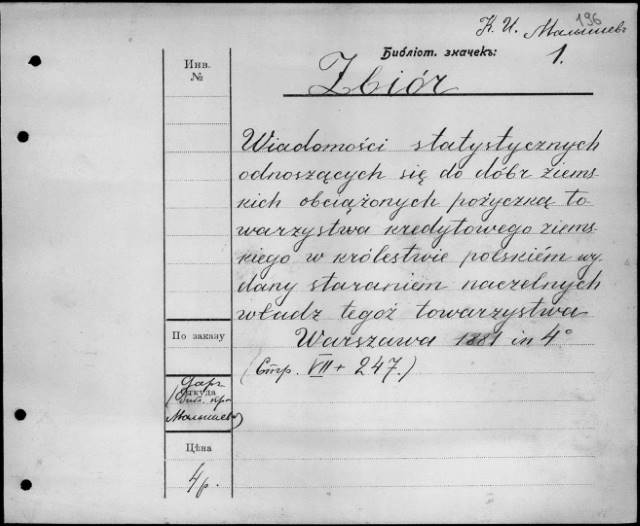 196
К. И. Малышев
Библіот. значекъ:
1.
Инв.
№
Zbiór
Wiadomości statystycznych
odnoszących się do dóbr ziems
kich obciążonych pożyczką to
warzystwa kredytowego ziems
kiego w królestwie polskiém wy
dany staraniem naczelnych
władz tegoż towarzystwa
Warszawa 1881 in 4°
(Стр. VII + 247.)
По заказу
Даръ
Откуда
Малышева)
Цѣна
4 р.